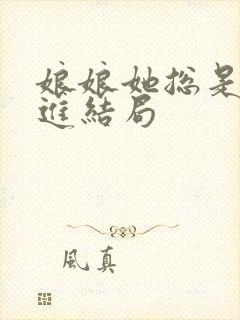 娘娘她总是
進結局
風真